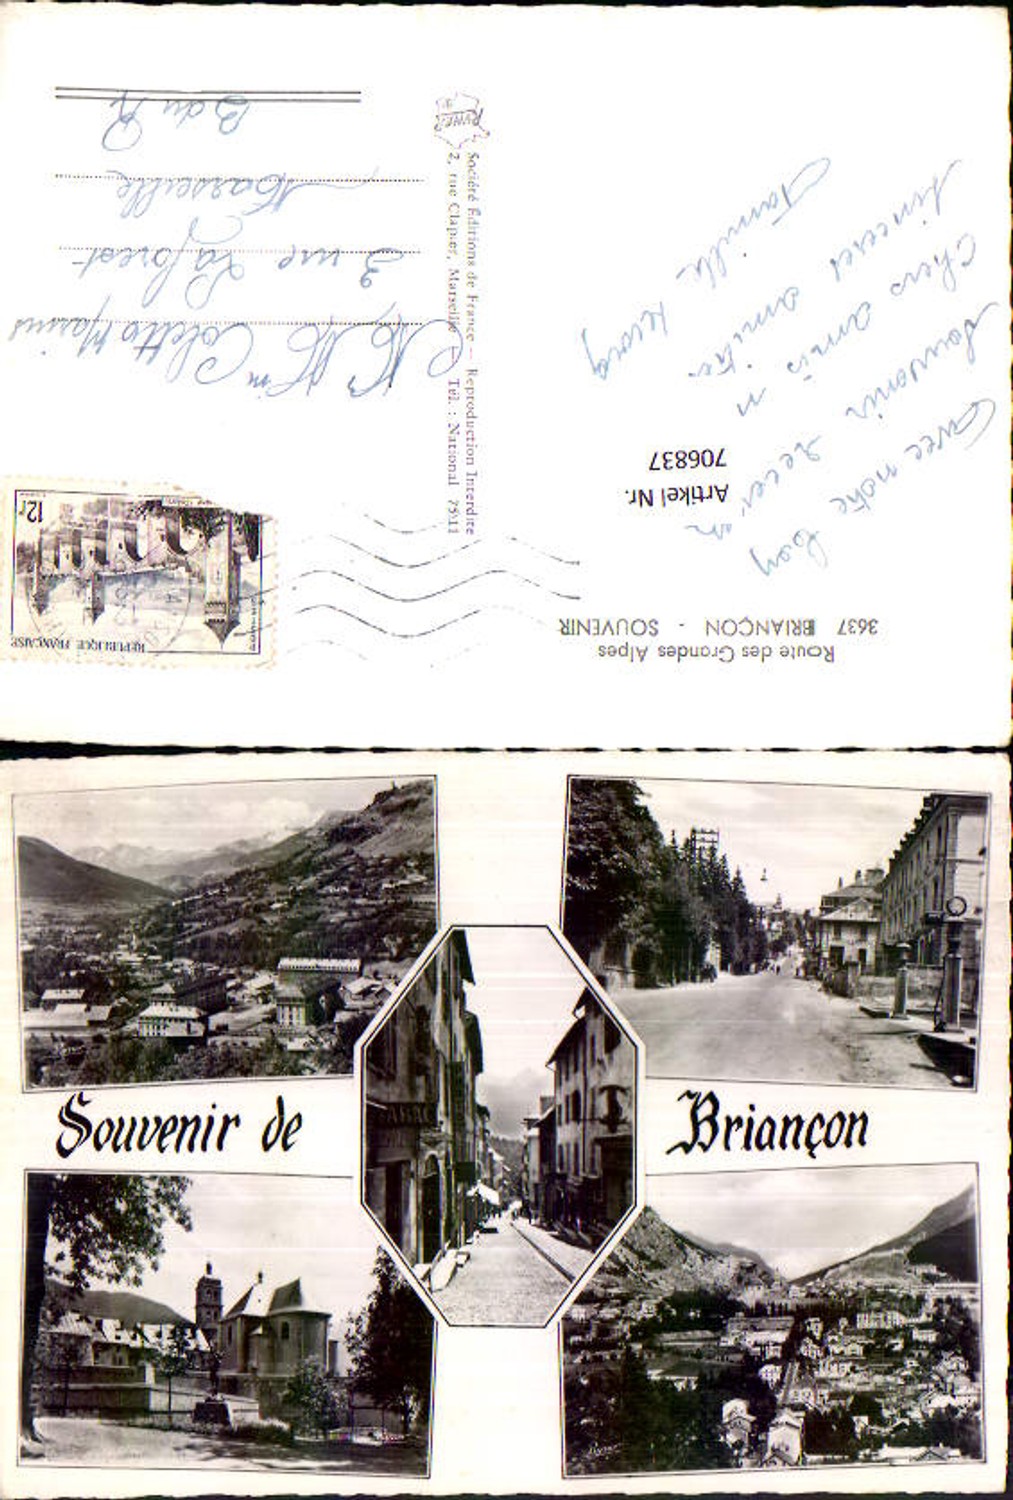 Route des Grandes Alpes
3637 BRIANÇON - SOUVENIR
Artikel Nr.
706837
Avec notre bon
Souvenir recevez
Chers amis n
Sincères amitiés
Famille
Société Éditions de France — Reproduction Interdite
2, rue Clapier, Marseille Tél. : National 75-11
REPUBLIQUE FRANÇAISE
12f
M Mme Coletto Marius
3 rue Laforest
Marseille
B du R
Souvenir de Briançon
TABAC